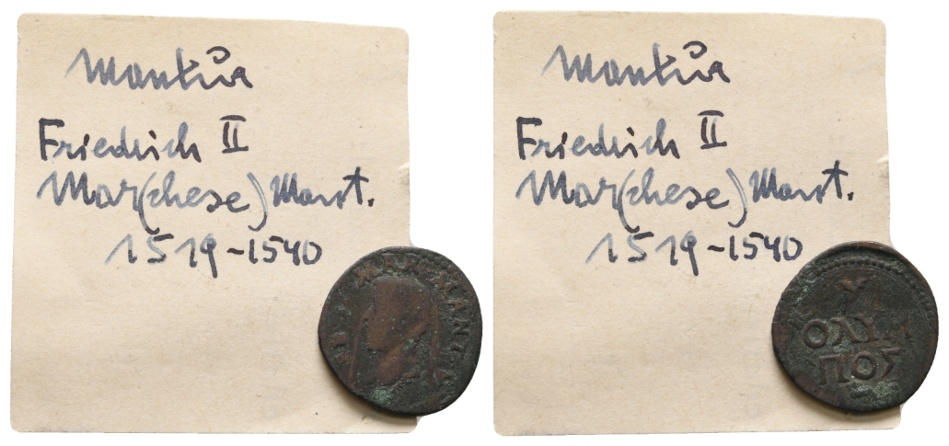 Mantua
Friedrich II
Mar(chese) Mant.
1519-1540
MAR MANT
Mantua
Friedrich II
Mar(chese) Mant.
1519-1540
ΟΛΥ
ΠΟΣ